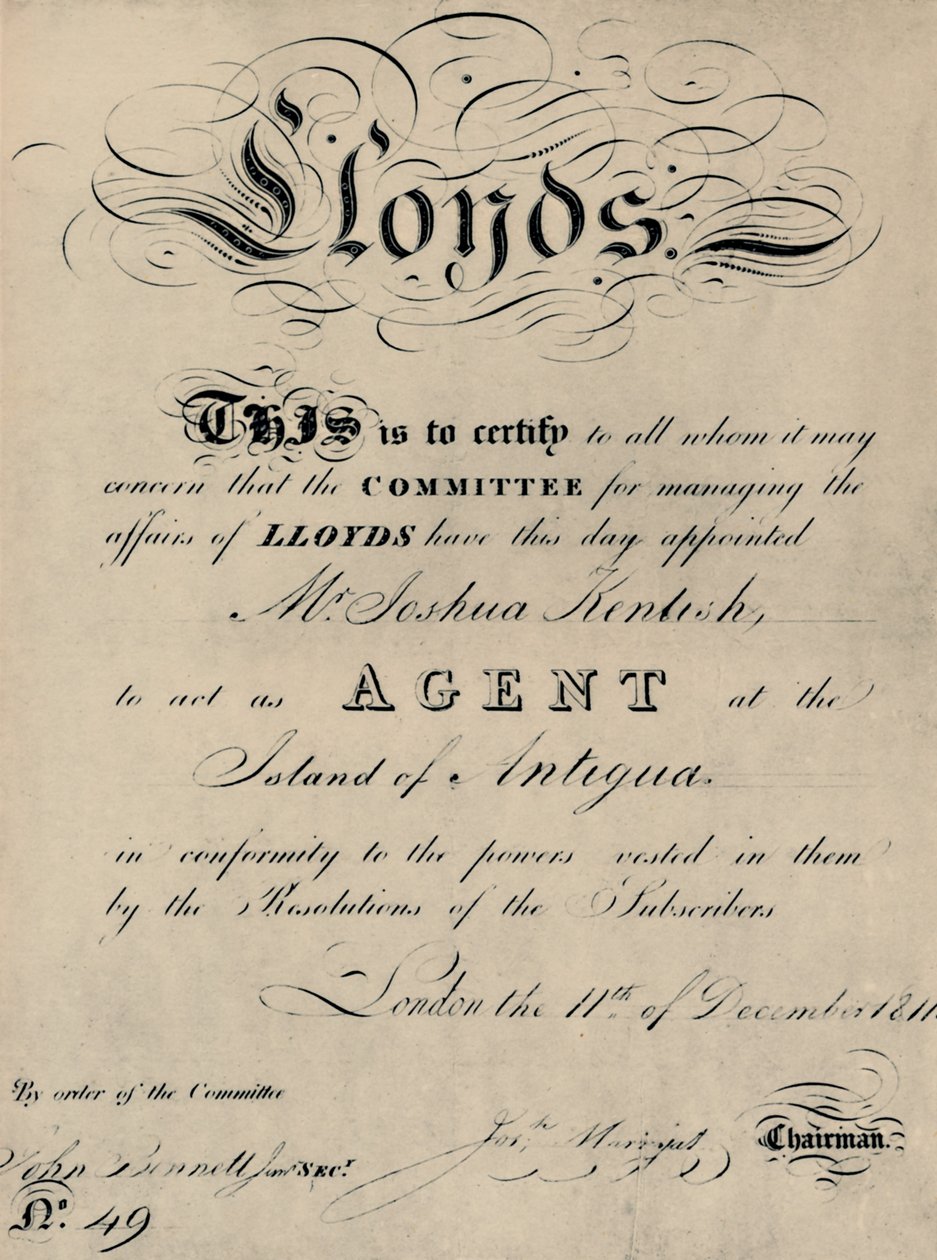 Lloyds.
THIS is to certify to all whom it may
concern that the COMMITTEE for managing the
affairs of LLOYDS have this day appointed
Mr. Joshua Kentish,
to act as AGENT at the
Island of Antigua.
in conformity to the powers vested in them
by the Resolutions of the Subscribers
London the 11th of December 1811.
By order of the Committee
Josh. Marryat Chairman.
John Bennett Junr SECY.
No. 49